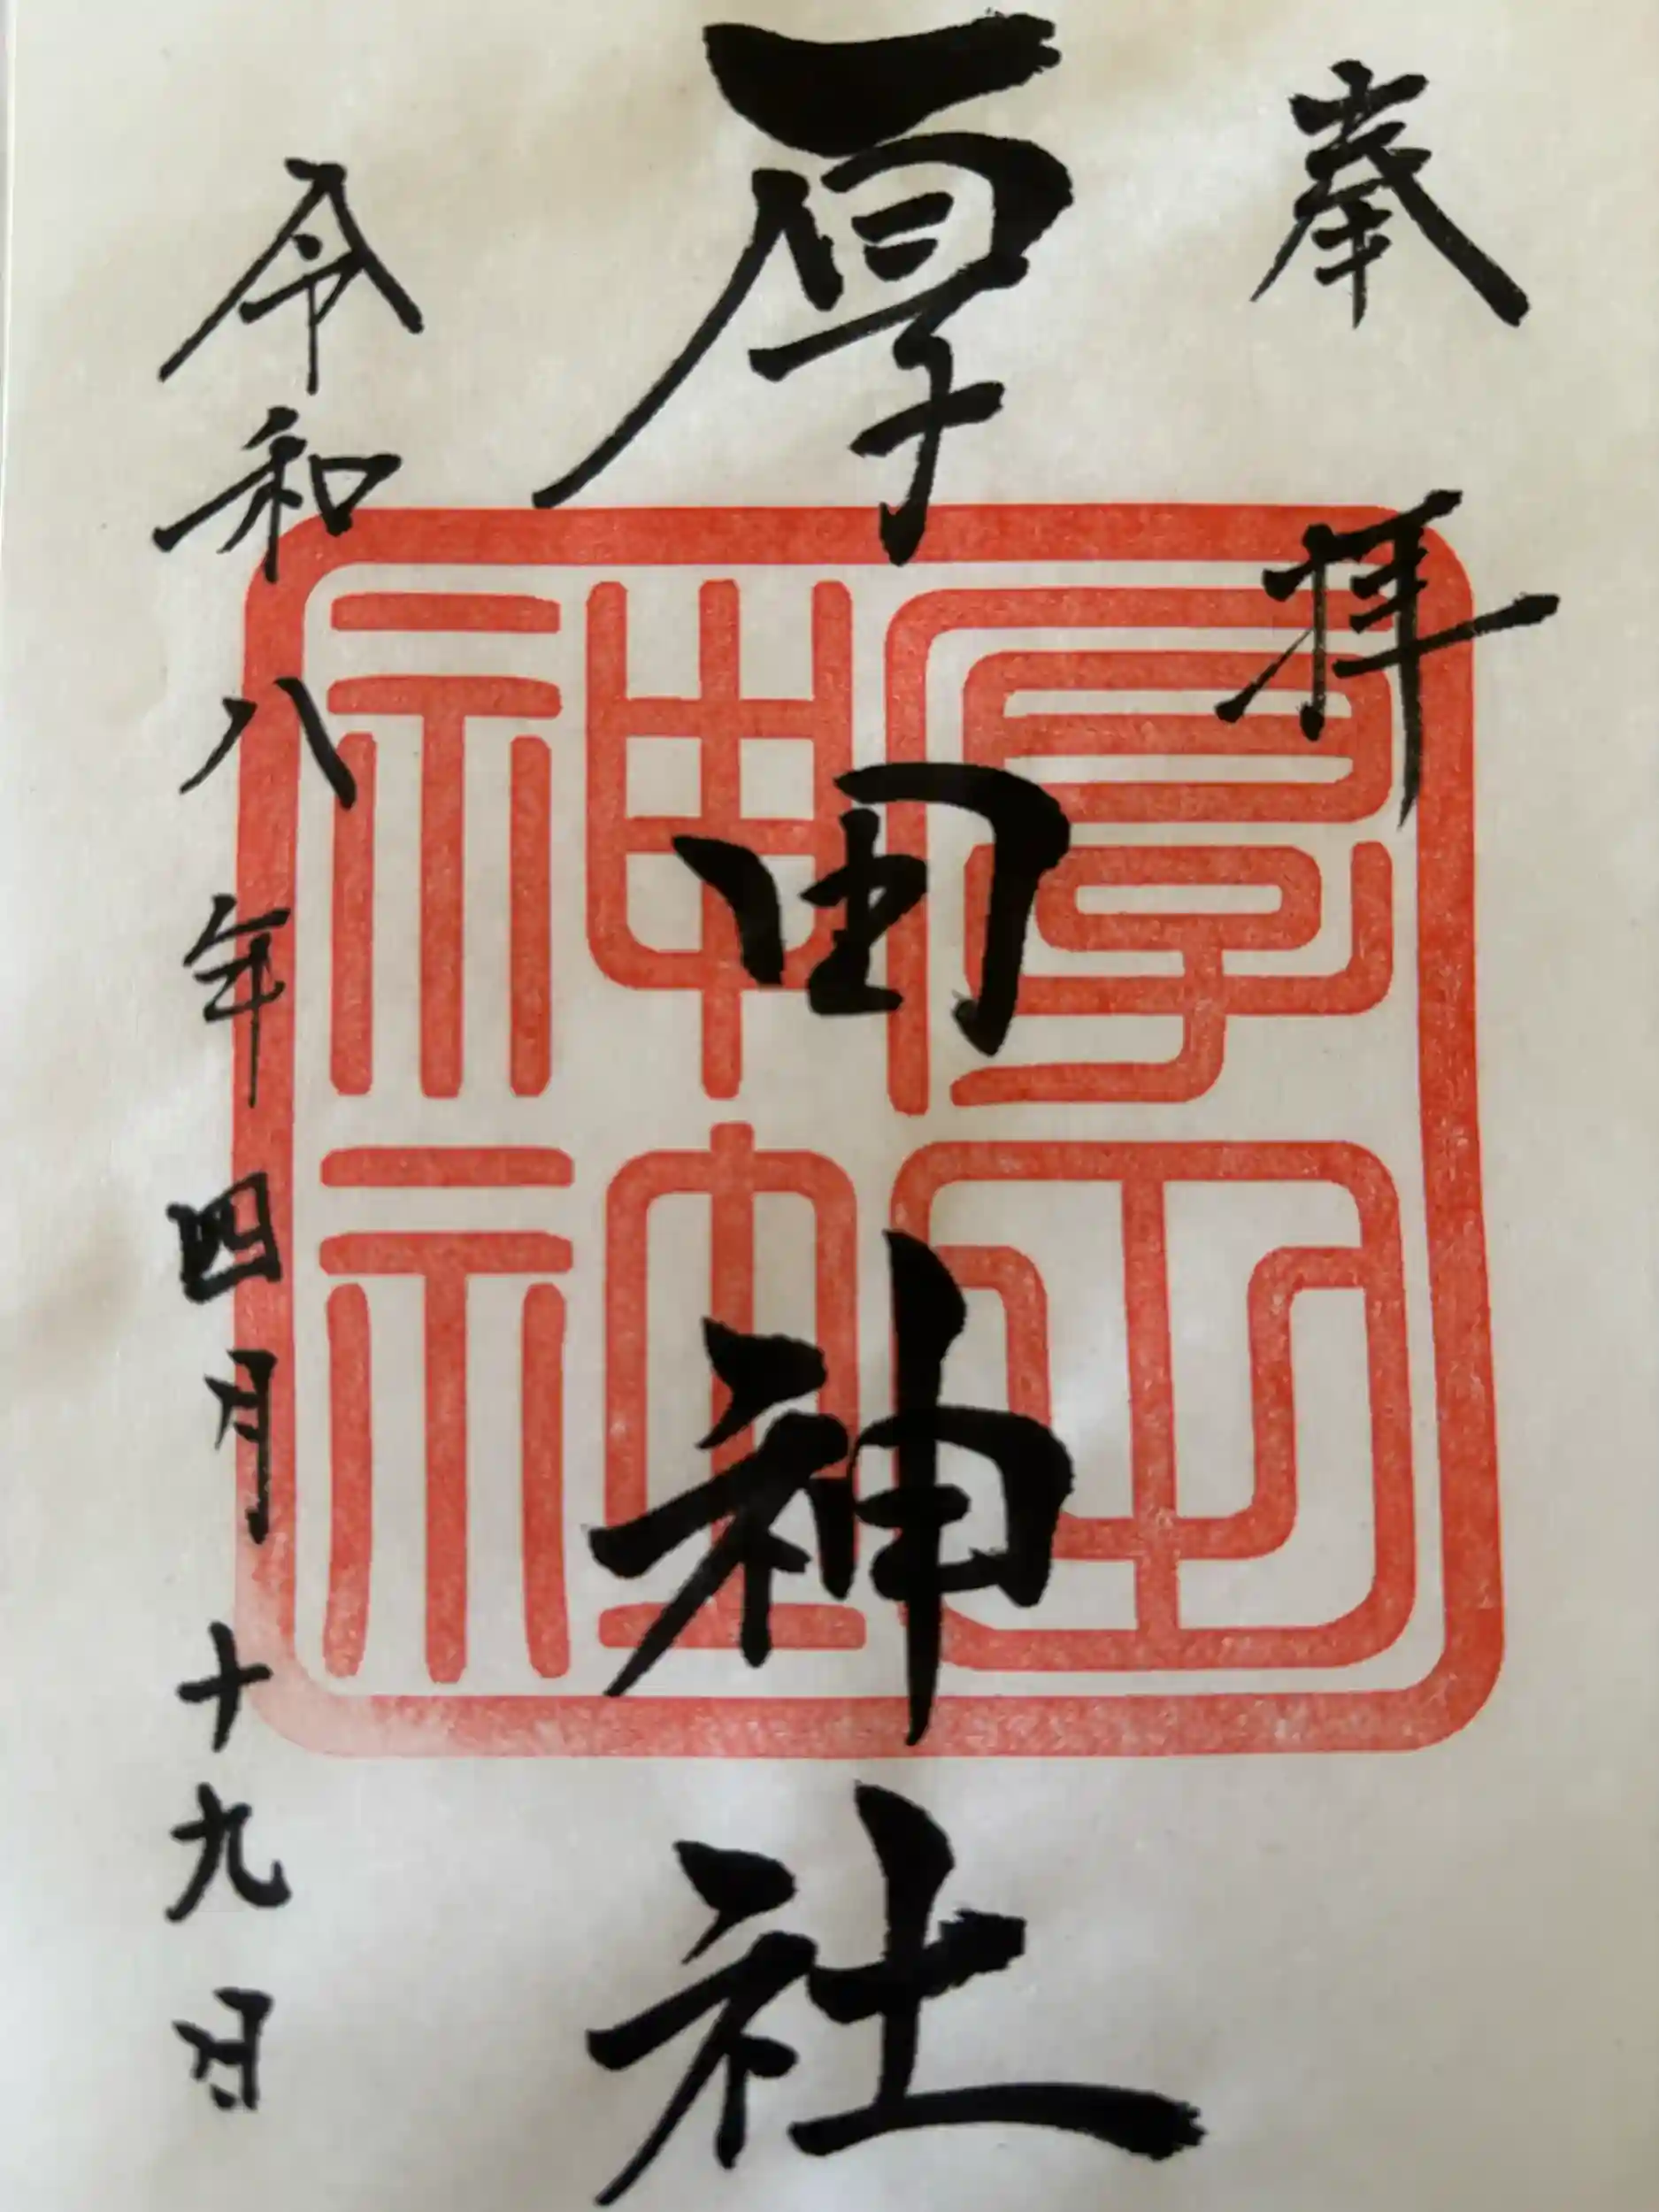 奉拝
厚田神社
厚田
神社
令和八年四月十九日